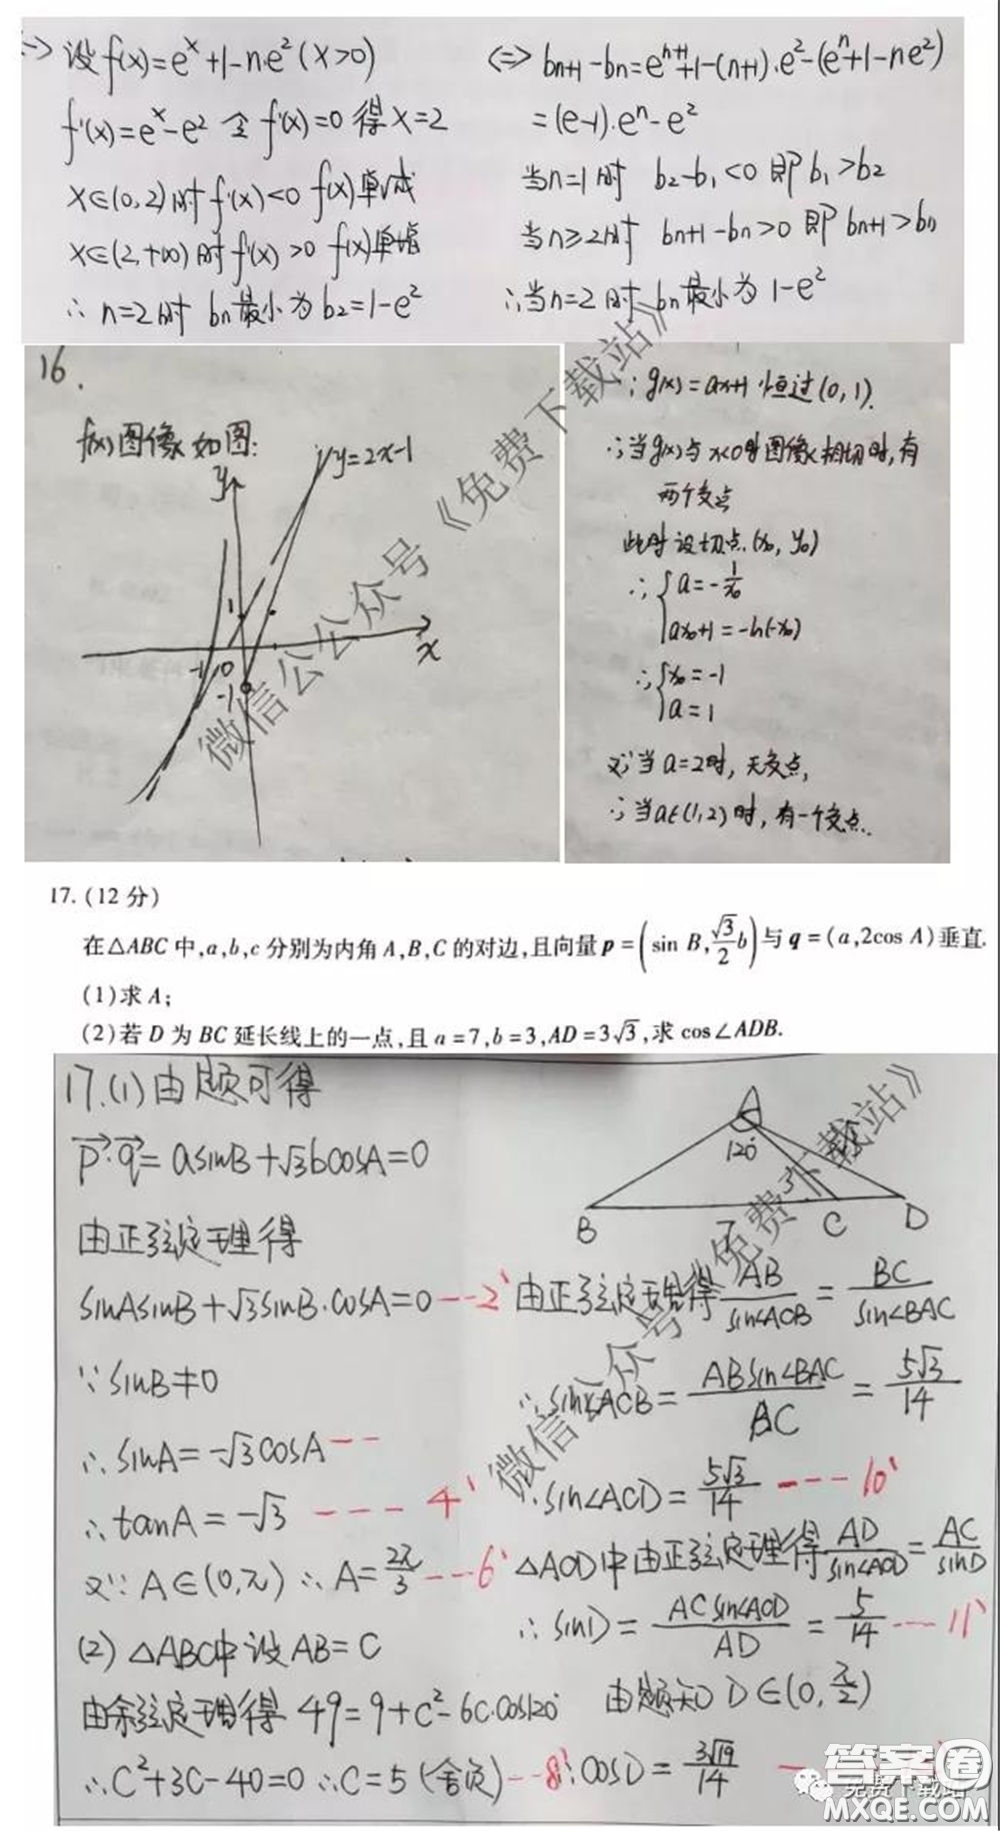 设f(x)=e^x+1-n·e²(x>0)
f'(x)=e^x-e² 令f'(x)=0得x=2
x∈(0,2)时f'(x)<0 f(x)单减
x∈(2,+∞)时f'(x)>0 f(x)单增
∴n=2时 bn最小为b₂=1-e²
<=> bn+1-bn=e^(n+1)+1-(n+1)·e²-(e^n+1-ne²)
=(e-1)·e^n-e²
当n=1时 b₂-b₁<0即b₁>b₂
当n≥2时 bn+1-bn>0即bn+1>bn
∴当n=2时 bn最小为1-e²
16.
f(x)图像如图:
y
y=2x-1
1
-1 0
x
-1
∵g(x)=ax+1恒过(0,1).
∴当g(x)与x<0时图像相切时,有
两个交点
此时设切点(x₀,y₀)
∴{a=-1/x₀
ax₀+1=-ln(-x₀)
∴{x₀=-1
a=1
又∵当a=2时,无交点,
∴当a∈(1,2)时,有一个交点..
微信公众号《免费下载站》
17.(12分)
在△ABC中,a,b,c分别为内角A,B,C的对边,且向量p=(sin B,√3/2 b)与q=(a,2cos A)垂直.
(1)求A;
(2)若D为BC延长线上的一点,且a=7,b=3,AD=3√3,求cos∠ADB.
17.(1)由题可得
p·q=asinB+√3bcosA=0
由正弦定理得
sinAsinB+√3sinB·cosA=0---2'
∵sinB≠0
∴sinA=-√3cosA--
∴tanA=-√3 ----4'
又∵A∈(0,π)∴A=2π/3---6'
(2)△ABC中设AB=C
由余弦定理得 49=9+c²-6c·cos120°
∴C²+3C-40=0∴C=5(舍负)--8'
A
120°
B 7 C D
由正弦定理得AB/sin∠ACB=BC/sin∠BAC
∴sin∠ACB=ABsin∠BAC/BC=5√3/14
∴sin∠ACD=5√3/14 ----10'
△ACD中由正弦定理得AD/sin∠ACD=AC/sinD
∴sinD=ACsin∠ACD/AD=5/14---11'
由题知D∈(0,π/2)
∴cosD=3√19/14
微信公众号《免费下载站》
免费下载站
答案圈
MXQE.COM